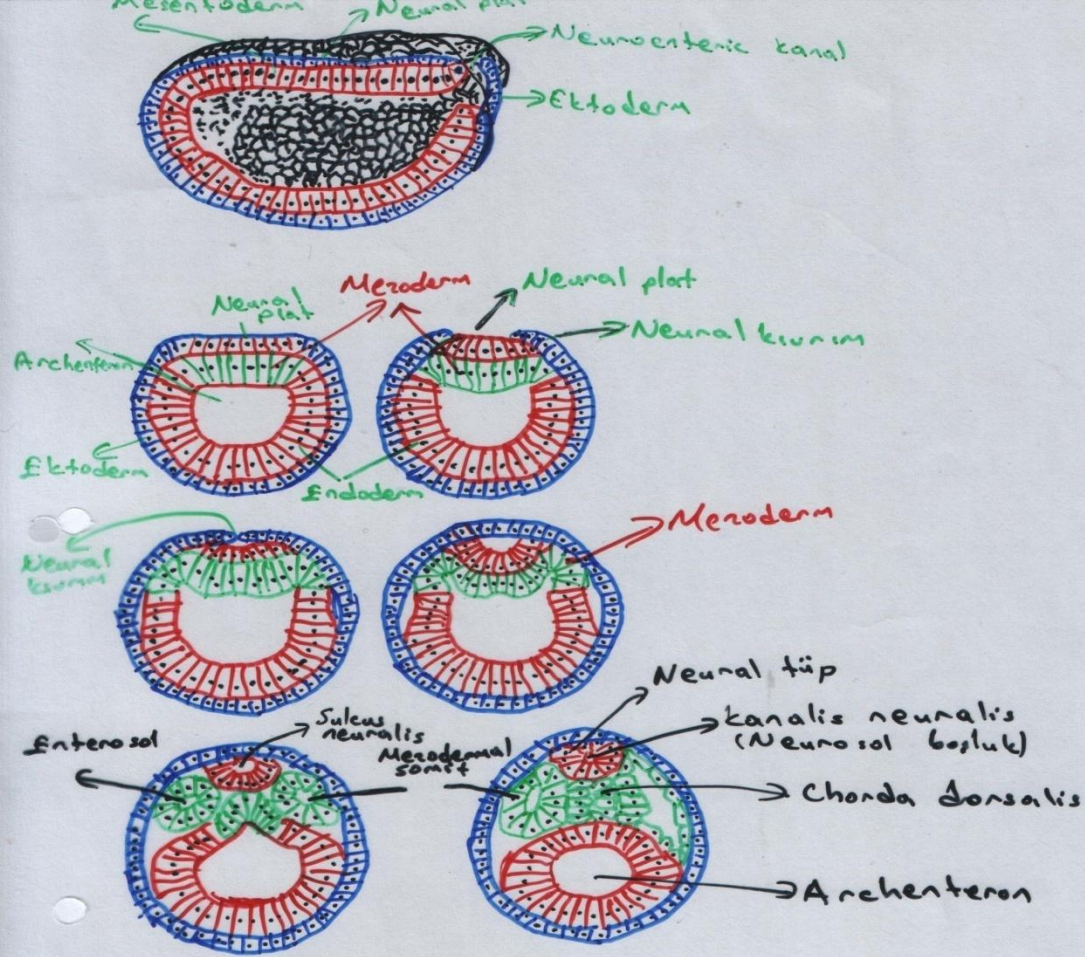 Mesentoderm
Neural plat
Neuroenteric kanal
Ektoderm
Mezoderm
Neural plat
Neural
plat
Neural kıvrım
Archenteron
Ektoderm
Endoderm
Mezoderm
Neural
kıvrım
Neural tüp
Enterosol
Sulcus
neuralis
Mezodermal
somit
kanalis neuralis
(Neurosol boşluk)
Chorda dorsalis
Archenteron